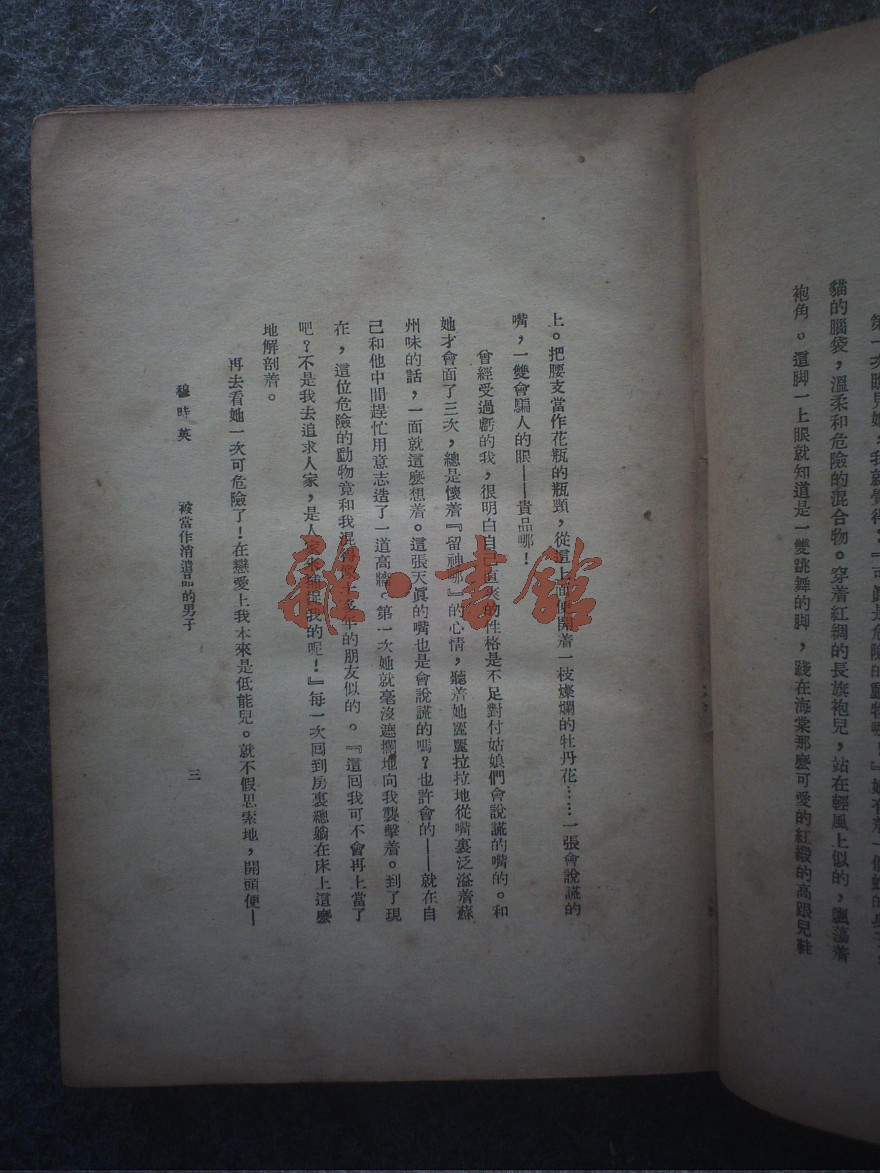 第一次瞧見她，我就覺得：『可真是危險的動物哪！』她有着一個蛇的身子，
貓的腦袋，溫柔和危險的混合物。穿着紅綢的長旗袍兒，站在輕風上似的，飄蕩着
袍角。這脚一上眼就知道是一雙跳舞的脚，踐在海棠那麼可愛的紅緞的高跟兒鞋
上。把腰支當作花瓶的瓶頸，從這上面便開着一枝燦爛的牡丹花……一張會說謊的
嘴，一雙會騙人的眼——貴品哪！
曾經受過虧的我，很明白自己直爽的性格是不足對付姑娘們會說謊的嘴的。和
她才會面了三次，總是懷着『留神哪』的心情，聽着她麗麗拉拉地從嘴裏泛溢着蘇
州味的話，一面就這麼想着。這張天眞的嘴也是會說謊的嗎？也許會的——就在自
己和他中間趕忙用意志造了一道高牆。第一次她就毫沒遮攔地向我襲擊着。到了現
在，這位危險的動物竟和我混得像十多年的朋友似的。『這回我可不會再上當了
吧？不是我去追求人家，是人家來捕捉我的呢！』每一次回到房裏總躺在床上這麼
地解剖着。
再去看她一次可危險了！在戀愛上我本來是低能兒。就不假思索地，開頭便—
穆時英　被當作消遣品的男子
三
雜·書館